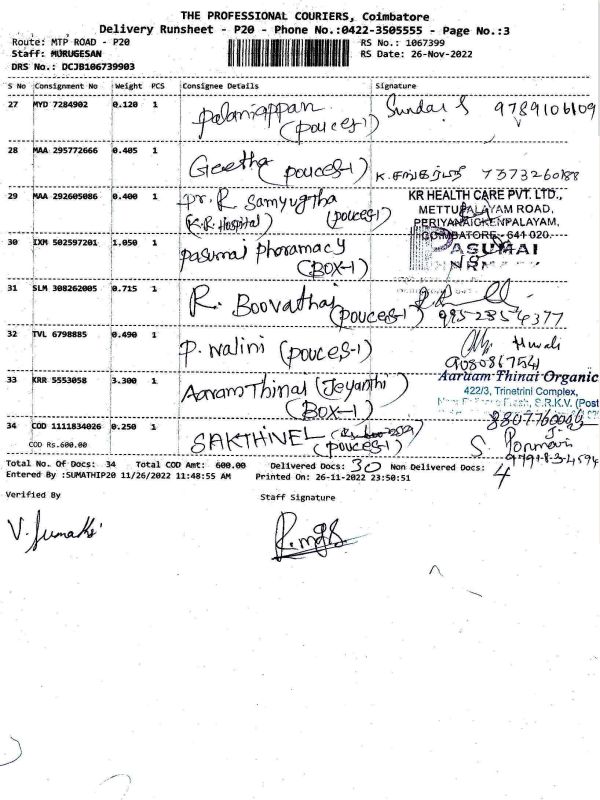 THE PROFESSIONAL COURIERS, Coimbatore
Delivery Runsheet - P20 - Phone No.:0422-3505555 - Page No.:3
Route: MTP ROAD - P20
RS No.: 1067399
Staff: MURUGESAN
RS Date: 26-Nov-2022
DRS No.: DCJB106739903
S No Consignment No Weight PCS Consignee Details Signature
27 MYD 7284902 0.120 1 Palaniappan Sundar S 9789106109
(pouces-1)
28 MAA 295772666 0.405 1 Geetha (pouces-1) 7373260188
29 MAA 292605086 0.400 1 Dr. R Samyugtha KR HEALTH CARE PVT. LTD.,
(K.R. Hospital) (pouces-1) METTUPALAYAM ROAD,
PERIYANAICKENPALAYAM,
COIMBATORE - 641 020.
30 IXM 502597201 1.050 1 Pasumai Pharamacy ASUMAI
(BOX-1)
31 SLM 308262005 0.715 1 R. Boovathai
(pouces-1) 9952854377
32 TVL 6798885 0.490 1 P. Nalini (pouces-1)
9080867541
33 KRR 5553058 3.300 1 Aaram Thinai (Jeyanthi) Aaruam Thinai Organic
(BOX-1) 422/3, Trinetrini Complex,
S.R.K.V. (Post
34 COD 1111834026 0.250 1 SAKTHIVEL
COD Rs.600.00 (pouces-1) S.
Total No. Of Docs: 34 Total COD Amt: 600.00 Delivered Docs: 30 Non Delivered Docs: 4
Entered By :SUMATHIP20 11/26/2022 11:48:55 AM Printed On: 26-11-2022 23:50:51
Verified By Staff Signature
V. Sumathi